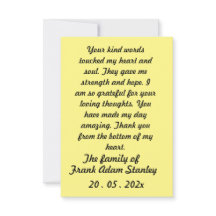 Your kind words
touched my heart and
soul. They gave me
strength and hope. I
am so grateful for your
loving thoughts. You
have made my day
amazing. Thank you
from the bottom of my
heart.
The family of
Frank Adam Stanley
20 . 05 . 202x